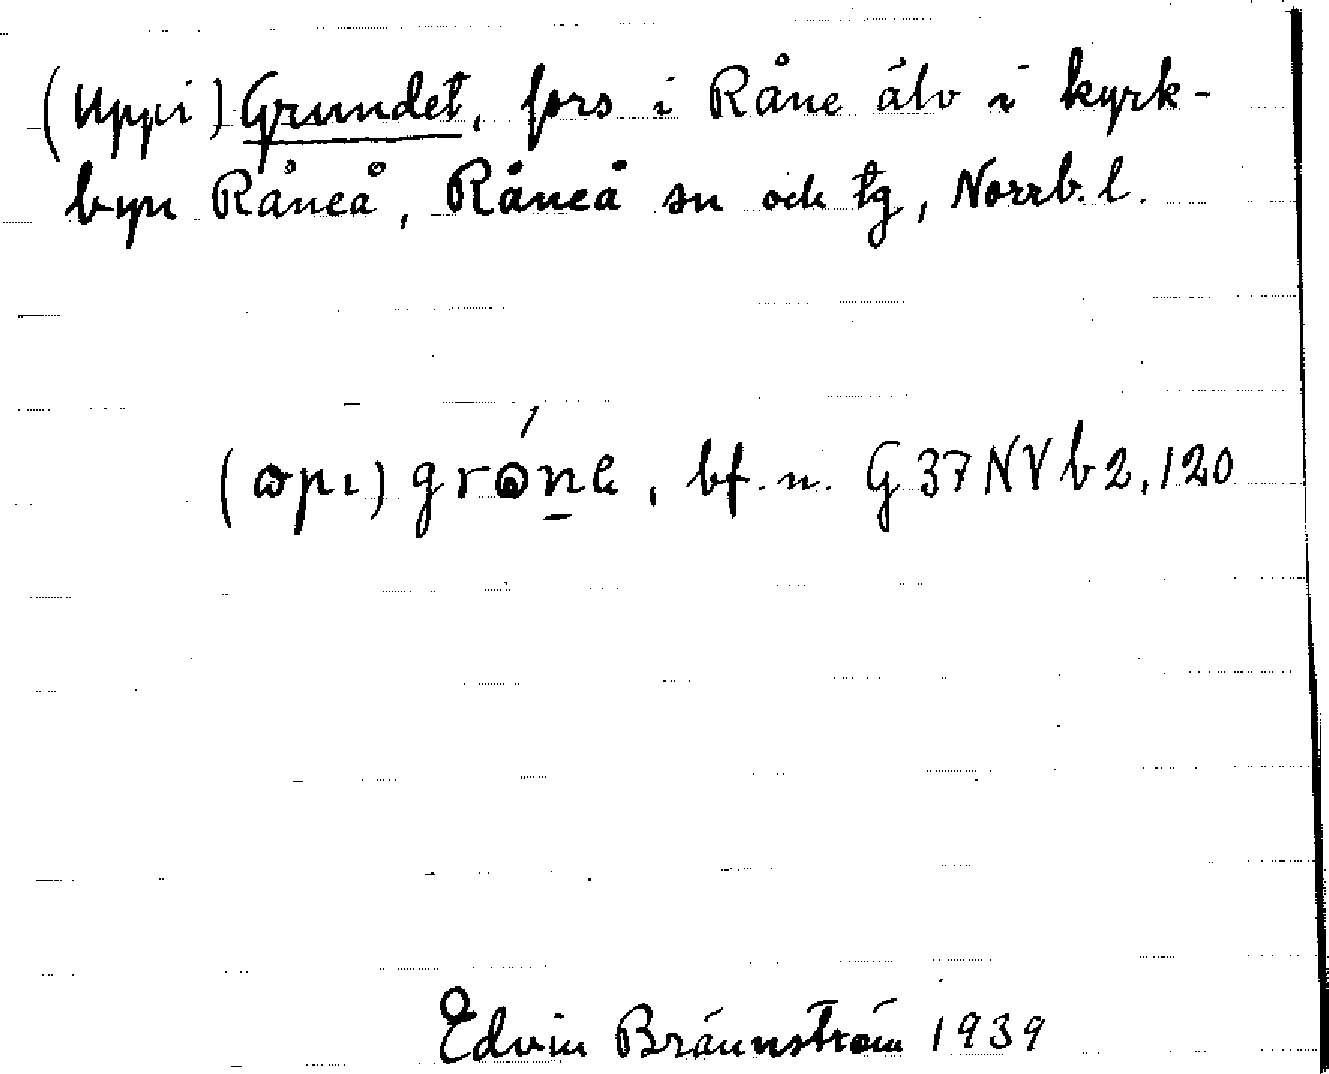 (Uppi) Grundet, fors i Råne älv i kyrk-
byn Råneå, Råneå sn och tg, Norrb. l.
bf. n. G 37 NV b 2, 120
Edvin Brännström 1939